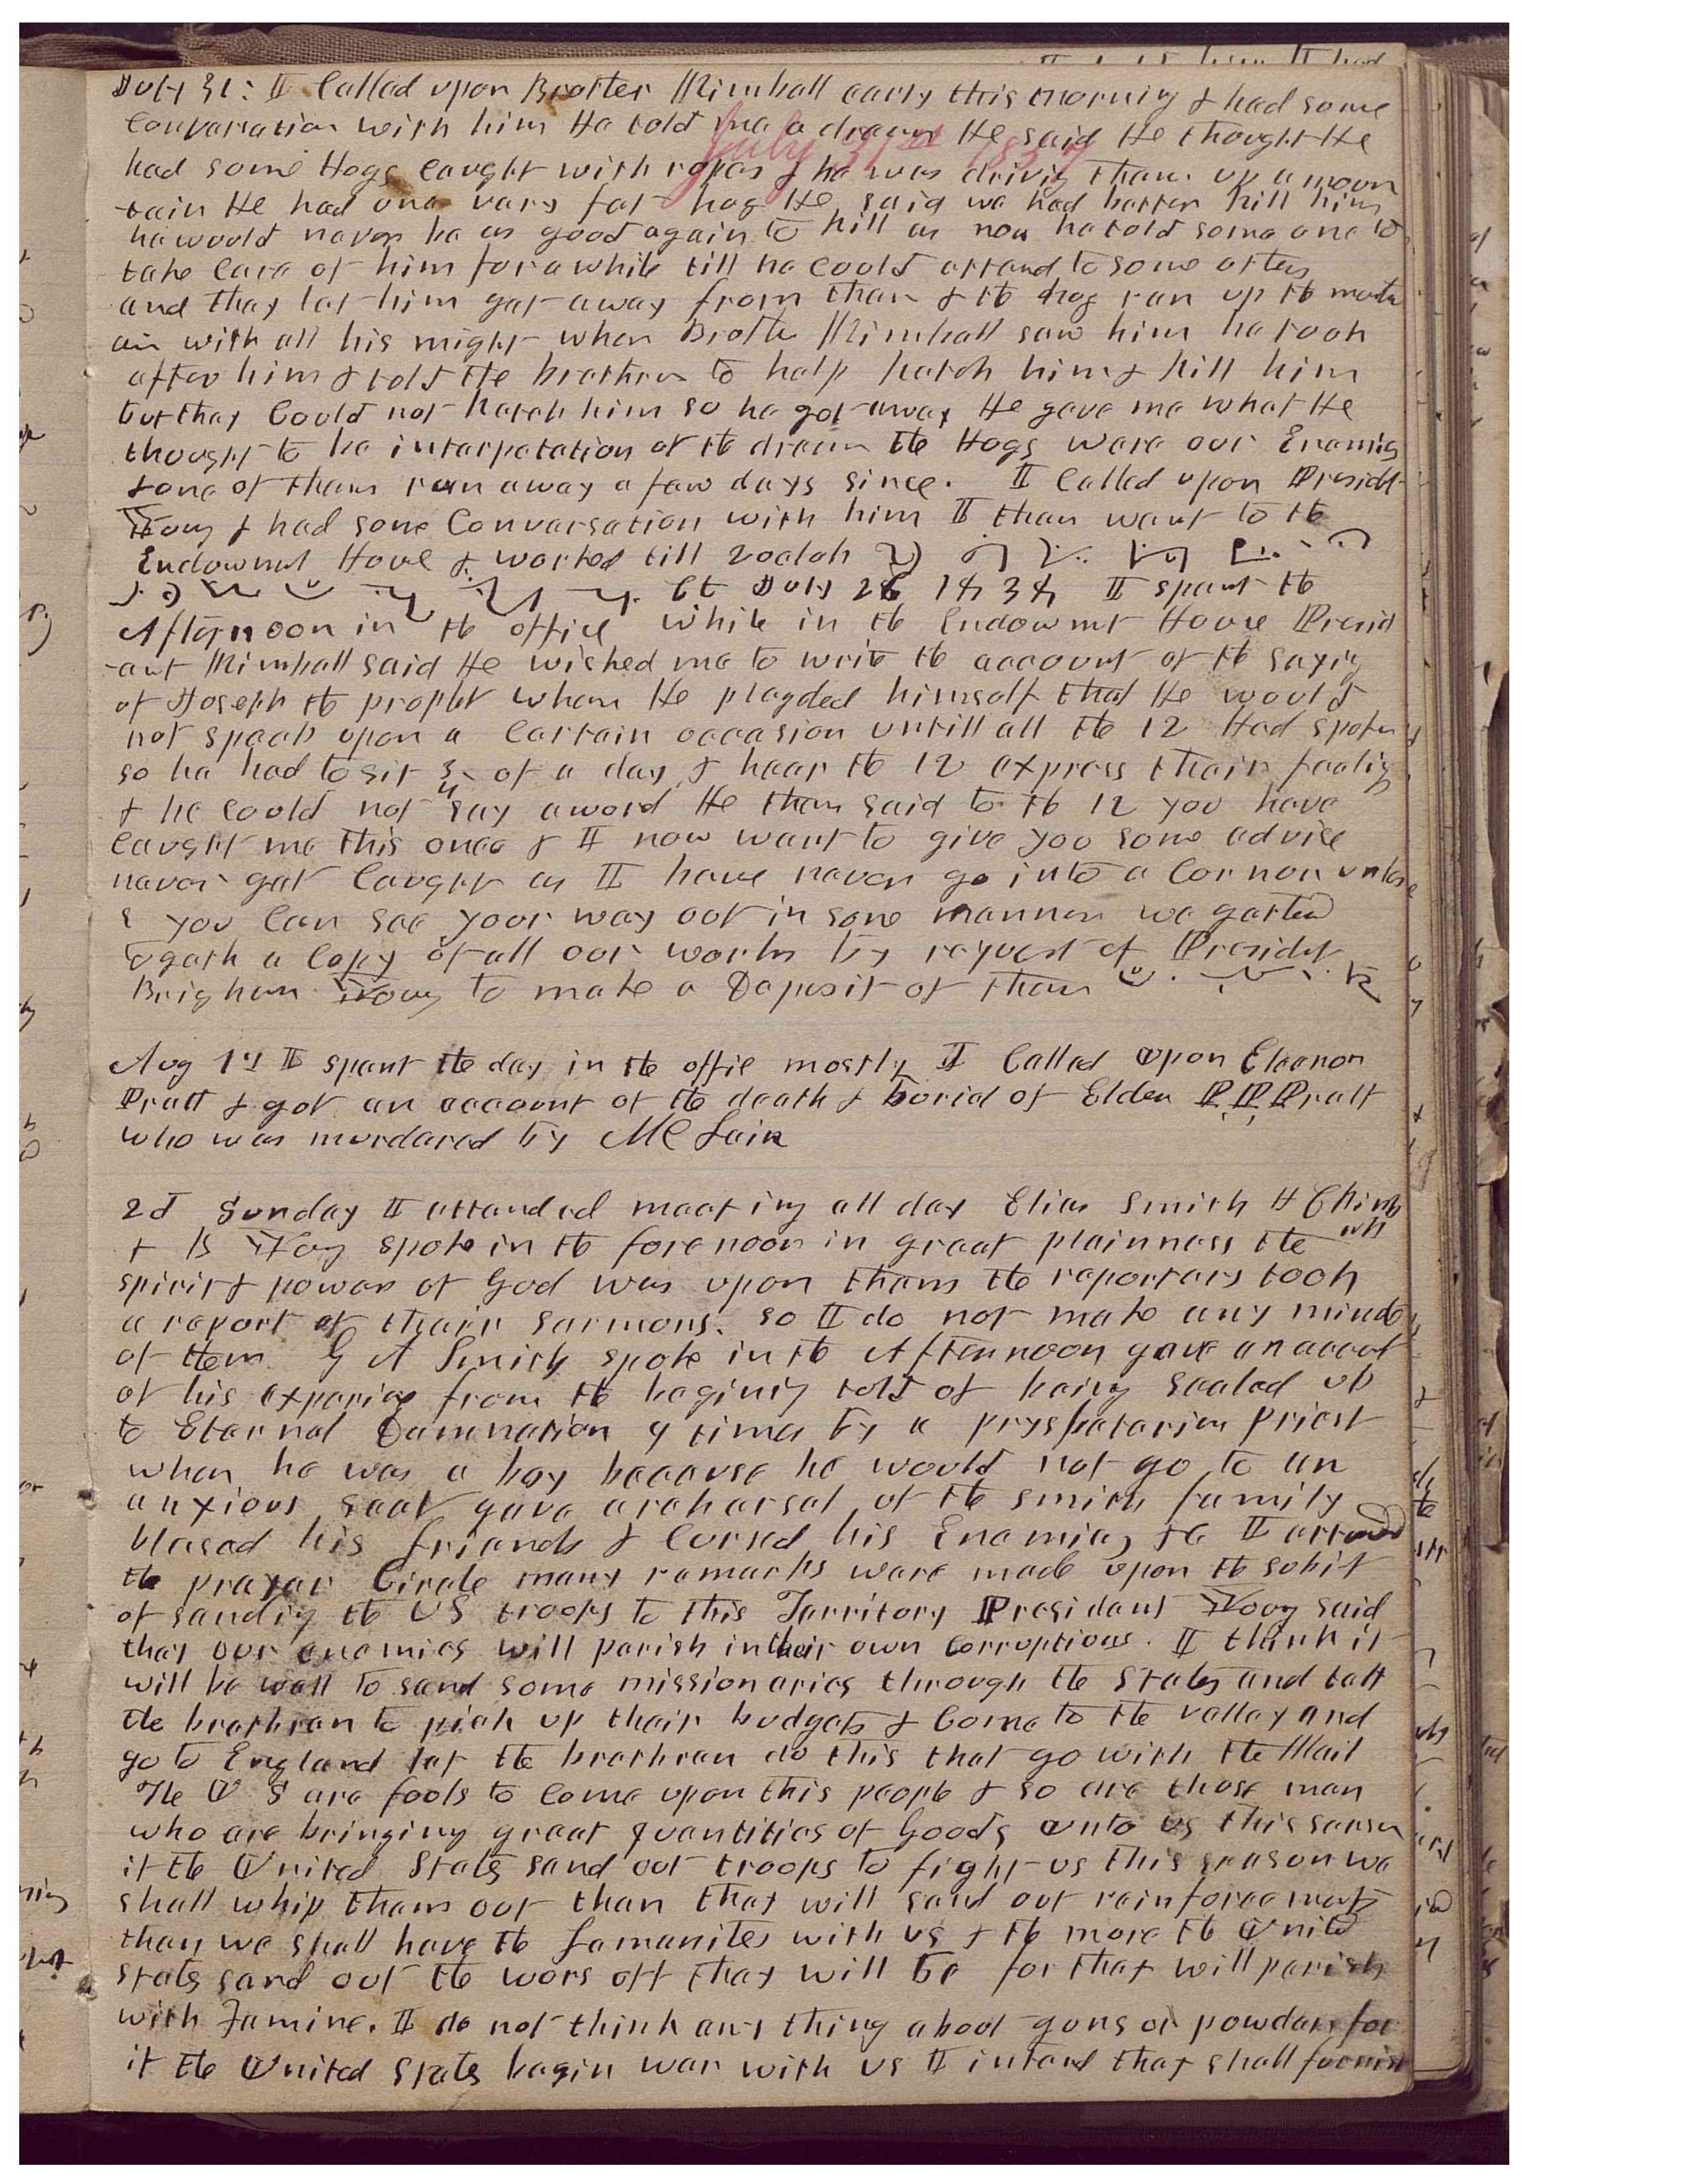 July 31: I Called upon Brother Kimball early this morning & had some
Convarsation with him He told me a dream He said He thought He
July 31st 1857
had some Hogs caught with ropes & he was drivig them up a moun
-tain He had one vary fat hog He said we had better kill him
he would never be as good again to kill as now he told some one to
take care of him for a while till he could attend to some others
and they let him get away from them & the hog ran up the mount
ain with all his might when Brother Kimball saw him he took
after him & told the brethren to help ketch him & kill him
but they Could not ketch him so he got away He gave me what He
thought to be interpetation of the dream the Hogs ware our Enemies
& one of them run away a few days since. I Called upon Presidet
Young & had some Convarsation with him I then went to the
Endowmt House & worked till 2 oclok
July 26 1838 I spent the
Afternoon in the office While in the Endowmt House Presid
-ent Kimball said He wished me to write the account of the sayig
of Joseph the prophet when He plegded himself that He would
not speak upon a Certain occasion untill all the 12 Had spoken
so he had to sit 3/4 of a day & hear the 12 express their feelig
& he could not say a word He then said to the 12 you have
caught me this once & I now want to give you some advice
never get Caught as I have never go into a Cornor unles
s you Can see your way out in some manner we gatherd
togath a Copy of all our works by request of Presidet
Brigham Young to make a Deposit of them

Aug 1st I spent the day in the offic mostly I Called upon Eleanor
Pratt & got an account of the death & burial of Elder P. P. Pratt
who was murdered by Mc Lain

2d Sunday I attended meeting all day Elias Smith H C Kimb
all
& B Young spoke in the forenoon in great plainness the
spirit & power of God was upon them the reporters took
a report of their sarmons. so I do not make any minuts
of them. G A Smith spoke in the Afternoon gave an accout
of his experice from the beginig told of being sealed up
to Eternal Damnation 9 times by a pryspatarian Priest
when he was a boy because he would not go to an
anxious seat gave a rehersal of the smith family
blessed his friends & Cursed his Enemies &c I attend
the prayer Circle many remarks ware made upon the sobjt
of sendig the US troops to this Territory President Young said
that our enemies will perish in their own Corruptions. I think it
will be well to send some missionaries through the States and tell
the brethren to pick up their budgets & Come to the valley and
go to England let the brethren do this that go with the Mail
The U S are fools to come upon this people & so are those men
who are bringing great quantities of Goods unto us this seasn
if the United States send out troops to fight us this season we
shall whip them out then they will send out reinforcemets
then we shall have the Lamanites with us & the more the Unitd
States send out the wors off they will be for they will perish
with Famine. I do not think any thing about guns or powder for
if the United States begin war with us I intend they shall furnish